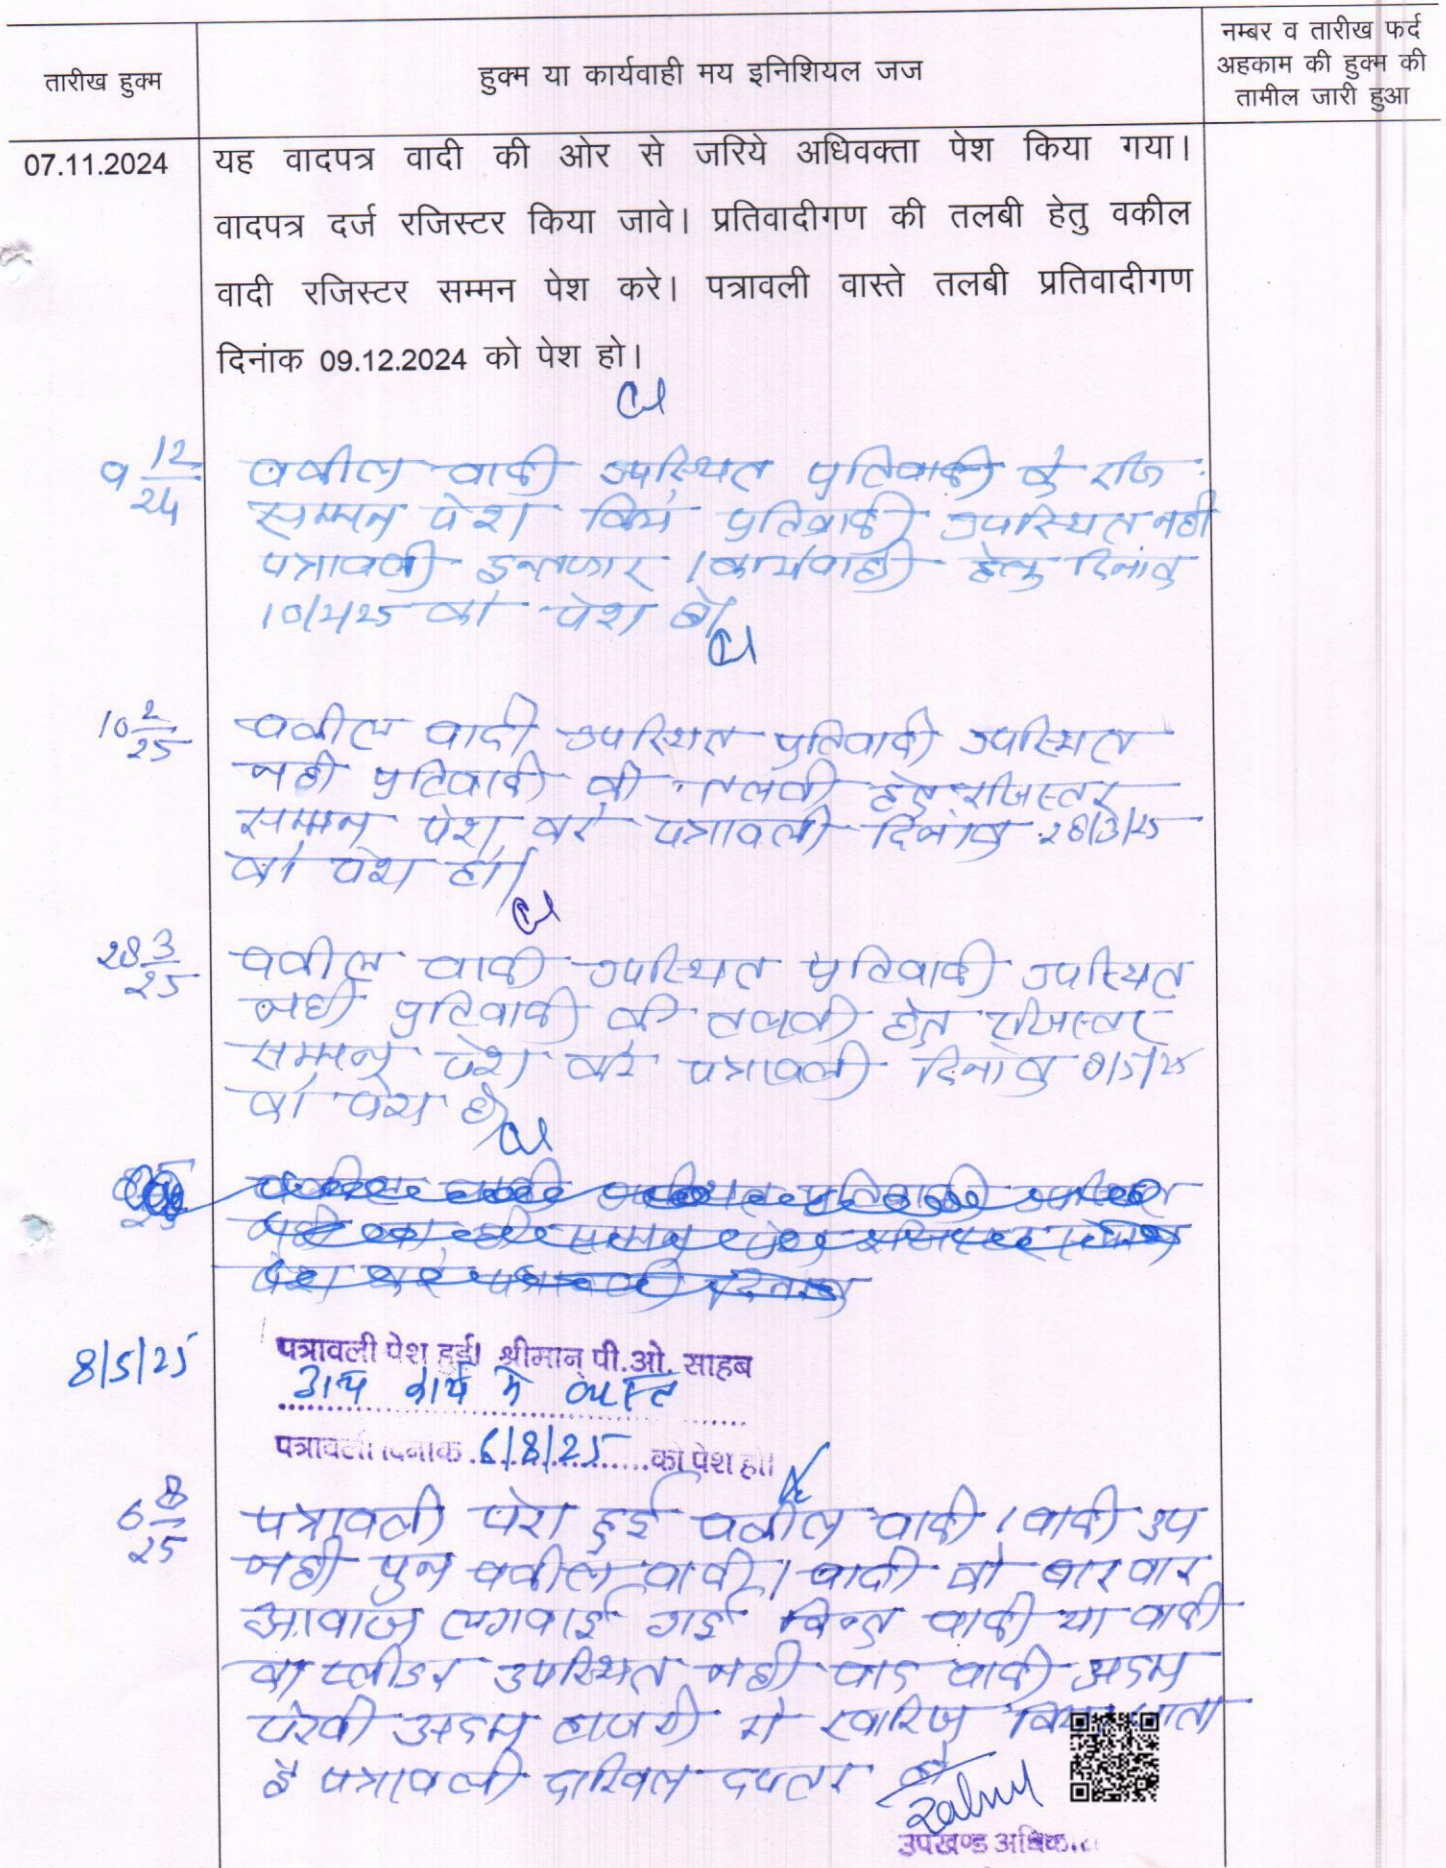 तारीख हुक्म
हुक्म या कार्यवाही मय इनिशियल जज
नम्बर व तारीख फर्द
अहकाम की हुक्म की
तामील जारी हुआ
07.11.2024
यह वादपत्र वादी की ओर से जरिये अधिवक्ता पेश किया गया।
वादपत्र दर्ज रजिस्टर किया जावे। प्रतिवादीगण की तलबी हेतु वकील
वादी रजिस्टर सम्मन पेश करे। पत्रावली वास्ते तलबी प्रतिवादीगण
दिनांक 09.12.2024 को पेश हो।
9 12/24
वकील वादी उपस्थित प्रतिवादी के रजि
सम्मन पेश किये प्रतिवादी उपस्थित नही
पत्रावली इन्तजार / कार्यवाही हेतु दिनांक
10/2/25 को पेश हो
10 2/25
वकील वादी उपस्थित प्रतिवादी उपस्थित
नही प्रतिवादी की तलबी हेतु रजिस्टर
सम्मन पेश करे पत्रावली दिनांक 28/3/25
को पेश हो
28 3/25
वकील वादी उपस्थित प्रतिवादी उपस्थित
नही प्रतिवादी की तलबी हेतु रजिस्टर
सम्मन पेश करे पत्रावली दिनांक 8/5/25
को पेश हो
8/5/25
पत्रावली पेश हुई। श्रीमान् पी.ओ. साहब
अन्य कार्य मे व्यस्त
पत्रावली दिनांक 6/8/25 को पेश हो।
6 8/25
पत्रावली पेश हुई वकील वादी / वादी उप
नही पुन वकील वादी / वादी को बारबार
आवाज लगवाई गई किन्तु वादी या वादी
का प्लीडर उपस्थित नही वाद वादी अदम
पेरवी अदम हाजरी मे खारिज किया जाता
है पत्रावली दाखिल दफ्तर हो
उपखण्ड अधिकारी